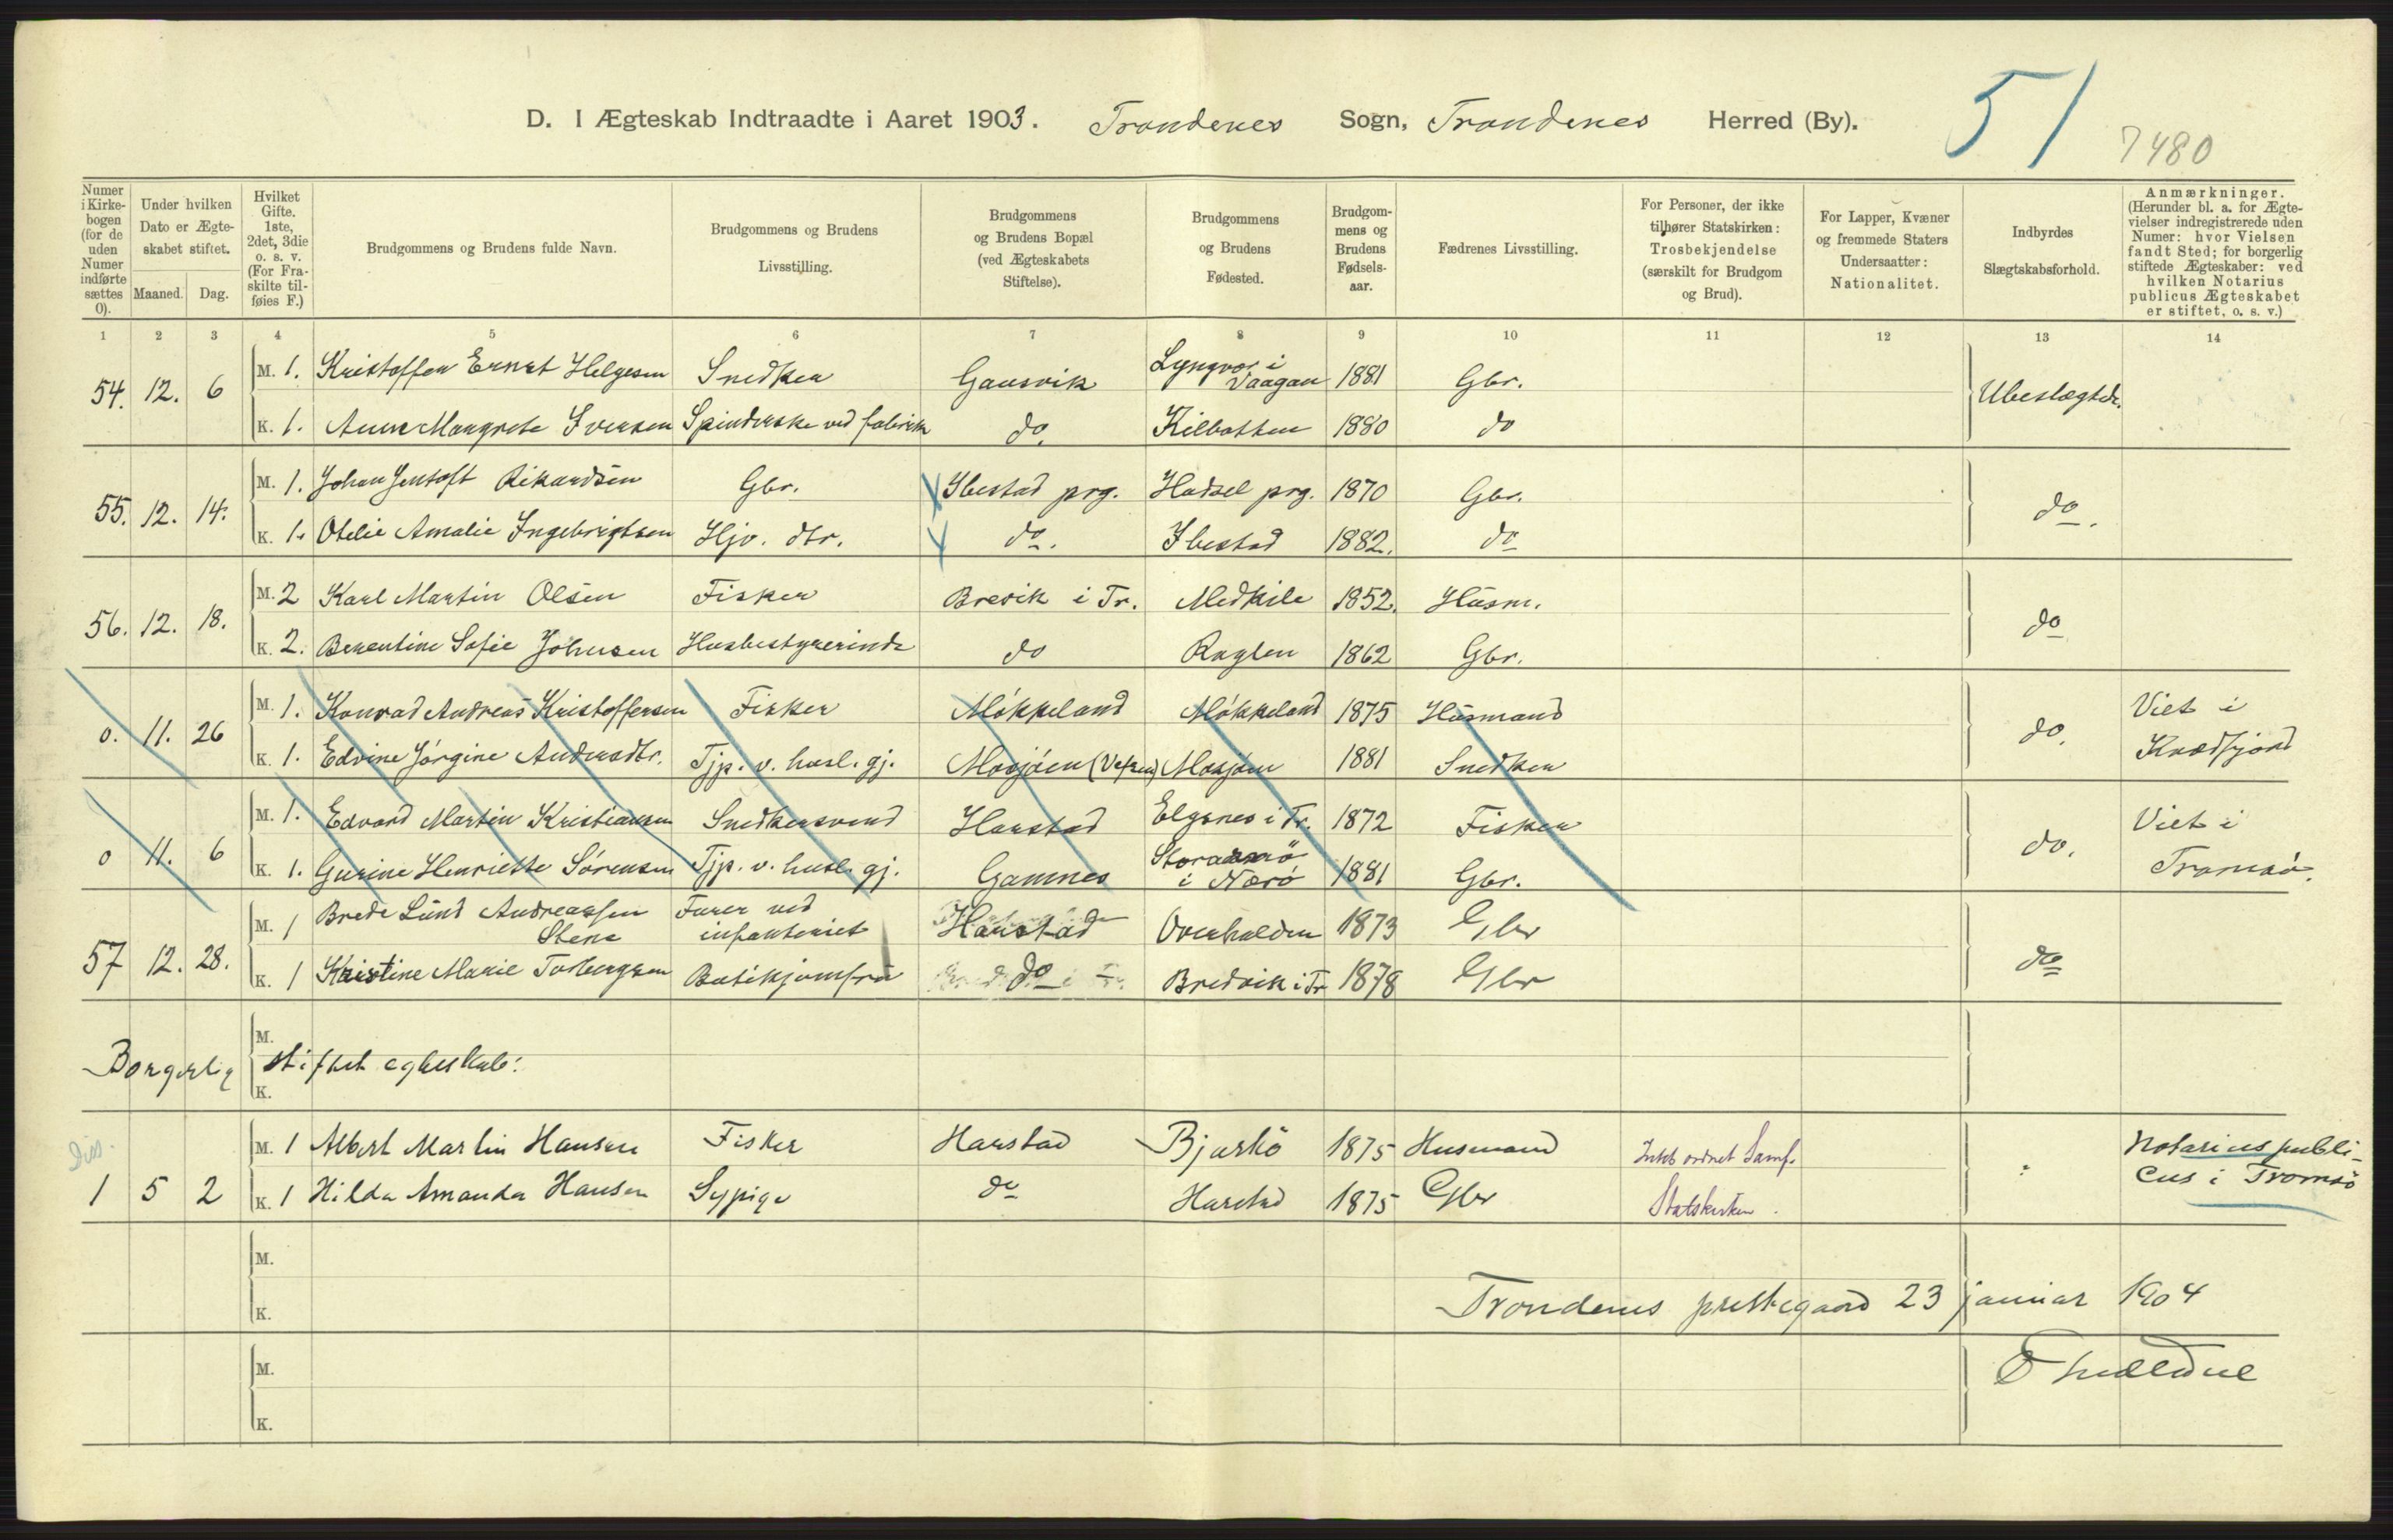 D. I Ægteskab Indtraadte i Aaret 1903. Trondenes Sogn, Trondenes Herred (By). 51
7480
Numer i Kirkebogen (for de uden Numer indførte sættes 0).
Under hvilken Dato er Ægteskabet stiftet.
Maaned. Dag.
Hvilket Gifte. 1ste, 2det, 3die o. s. v. (For Fraskilte tilføies F.)
Brudgommens og Brudens fulde Navn.
Brudgommens og Brudens Livsstilling.
Brudgommens og Brudens Bopæl (ved Ægteskabets Stiftelse).
Brudgommens og Brudens Fødested.
Brudgommens og Brudens Fødselsaar.
Fædrenes Livsstilling.
For Personer, der ikke tilhører Statskirken: Trosbekjendelse (særskilt for Brudgom og Brud).
For Lapper, Kvæner og fremmede Staters Undersaatter: Nationalitet.
Indbyrdes Slægtskabsforhold.
Anmærkninger. (Herunder bl. a. for Ægtevielser indregistrerede uden Numer: hvor Vielsen fandt Sted; for borgerlig stiftede Ægteskaber: ved hvilken Notarius publicus Ægteskabet er stiftet, o. s. v.)
1 2 3 4 5 6 7 8 9 10 11 12 13 14
54. 12. 6 M. 1. Kristoffer Ernst Helgesen Snedker Gausvik Lyngvær i Vaagan 1881 Gbr. Ubeslægtede.
K. 1. Anne Margrete Iversen Spinderske ved fabrik do. Kilbotten 1880 do
55. 12. 14. M. 1. Johan Jentoft Rikardsen Gbr. Ibestad prg. Hadsel prg. 1870 Gbr. do.
K. 1. Otelie Amalie Ingebrigtsen Hjv. dtr. do. Ibestad 1882. do
56. 12. 18. M. 2 Karl Martin Olsen Fisker Brevik i Tr. Medkile 1852. Husm. do
K. 2. Berentine Sofie Johnsen Husbestyrerinde do Roglen 1862 Gbr.
0. 11. 26 M. 1. Konrad Andreas Kristoffersen Fisker Møkkeland Møkkeland 1875 Husmand do. Viet i Kvædfjord
K. 1. Edvine Jørgine Andersdtr. Tjp. v. husl. gj. Mosjøen (Vefsen) Mosjøen 1881 Snedker
0 11. 6 M. 1. Edvard Martin Kristiansen Snedkersvend Harstad Elgsnes i Tr. 1872 Fisker do. Viet i Tromsø.
K. 1. Gurine Henriette Sørensen Tjp. v. husl. gj. Gamnes i Nærø 1881 Gbr.
57 12. 28. M. 1 Brede Lund Andreassen Stene Furer ved infanteriet Harstad Overhalden 1873 Gbr do
K. 1 Kristine Marie Torbergsen Butikjomfru do Bredvik i Tr 1878 Gbr
Borgerlig stiftet egteskab:
M.
K.
Diss.
1 5 2 M. 1 Albert Martin Hansen Fisker Harstad Bjarkö 1875 Husmand Intet ordnet Samf. " Notarius publicus i Tromsö
K. 1 Hilda Amanda Hansen Sypige do Harstad 1875 Gbr Statskirken.
M.
K.
Trondenes prestegaard 23 januar 1904
M.
K.